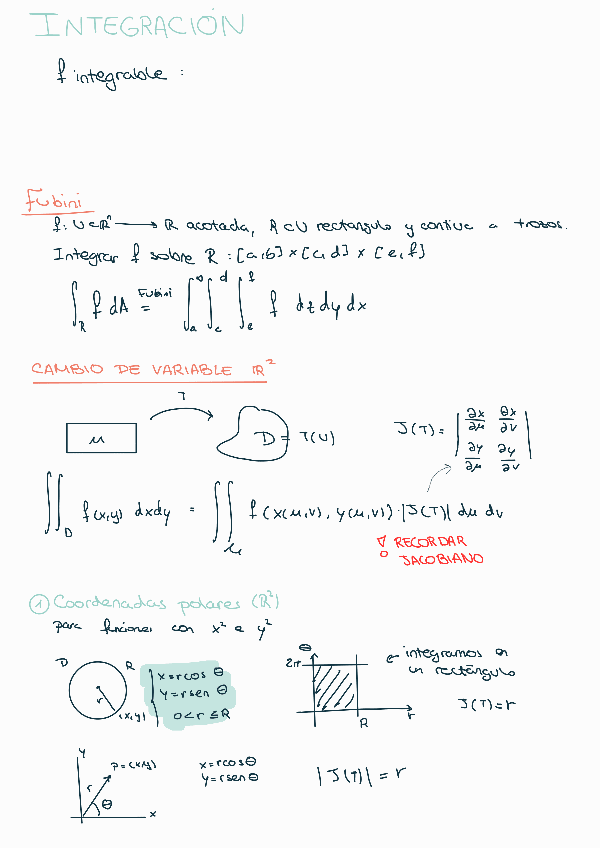 INTEGRACIÓN
f integrable :
Fubini
f: U⊂ℝⁿ → ℝ acotada, A⊂U rectangulo y continua a trozos.
Integrar f sobre R : [a,b] × [c,d] × [e,f]
∫_R f dA = Fubini ∫_a^b ∫_c^d ∫_e^f f dz dy dx
CAMBIO DE VARIABLE ℝ²
T
μ D = T(U) J(T) = | ∂x/∂μ ∂x/∂v ; ∂y/∂μ ∂y/∂v |
∬_D f(x,y) dxdy = ∬_μ f(x(μ,v), y(μ,v)) · |J(T)| dμ dv
RECORDAR
JACOBIANO
① Coordenadas polares (ℝ²)
para funciones con x² e y²
D R r (x,y)
x = r cos θ
y = r sen θ
0 < r ≤ R
θ 2π R r
integramos en
un rectángulo
J(T) = r
y P = (x,y) r θ x
x = r cos θ
y = r sen θ
|J(T)| = r